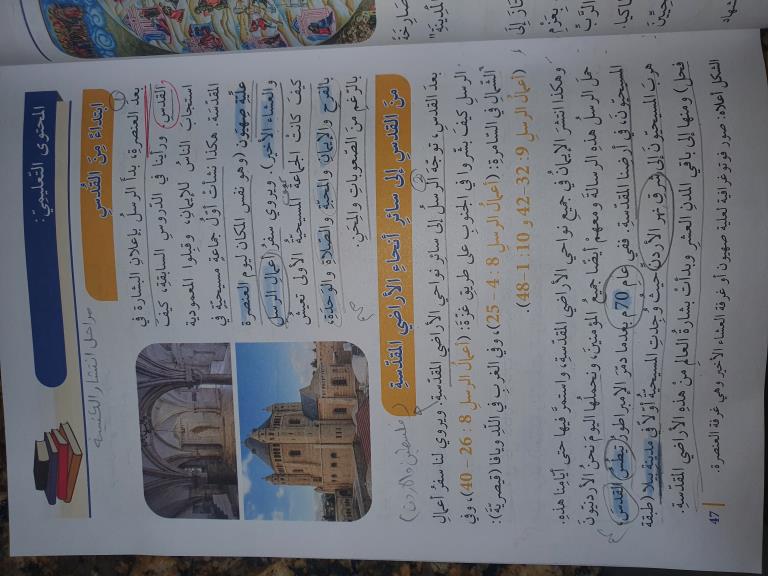 المحتوى التعليمي:
مراحل انتشار الكنيسة
ابتداءً مِنَ القُدْسِ
بعد العنصرة، بدأ الرسلُ بإعلانِ البشارةِ في
القدس ورأينا في الدروس السابقة، كيفَ
استجابَ الناسُ للإيمانِ، وقبلوا المعمودية
المقدّسة. هكذا نشأتْ أوّلُ جماعةٍ مسيحيّةٍ في
علّيّةِ صهيونَ (وهو نفس المكان ليوم العنصرة
والعشاء الأخير). ويروي سفرُ أعمال الرسل
كيفَ كانت الجماعةُ المسيحيّةُ الأولى تعيشُ
بالفرح والإيمان والمحبّة والصّلاة والوَحدة،
بالرّغمِ من الصّعوباتِ والمِحَن.
مِنَ القدسِ إلى سائرِ أنحاءِ الأراضي المقدّسةِ
فلسطين والاردن
بعدَ القدسِ، توجّهَ الرّسلُ إلى سائرِ نواحي الأراضي المقدّسة. ويروي لنا سفرُ أعمالِ
الرسلِ كيفَ بشّروا في الجنوبِ على طريقِ غزّةَ: (أعمالُ الرسلِ 8: 26 - 40)، وفي
الشّمالِ في السّامرة: (أعمالُ الرسلِ 8: 4 - 25)، وفي الغربِ في اللّد ويافا (قيصريّة):
(أعمالُ الرسلِ 9: 32 - 42 و 10: 1-48).
وهكذا انتشرَ الإيمانُ في جميعِ نواحي الأراضي المقدّسة، واستمرَّ فيها حتى أيّامِنا هذه.
حملَ الرسلُ هذه الرسالةَ ومعهم أيضًا جميعُ المؤمنين، ونحملُها اليومَ نحنُ الأردنيّونَ
المسيحيّون، في أرضِنا المقدّسة. ففي عام 70 م بعدما دمّرَ الإمبراطور تيطس القدسَ،
هربَ المسيحيّون إلى شرق نهر الأردن حيثُ وُجِدَتِ المسيحيّةُ أوّلاً في مدينةِ بيلا (طبقة
فحل) ومنها إلى باقي المدن العشرِ وبدأتْ بشارةُ العالمِ منْ هذهِ الأراضي المقدّسة.
الشكل أعلاه: صور فوتوغرافية لعلية صهيون أو غرفة العشاء الأخير وهي غرفة العنصرة.
47